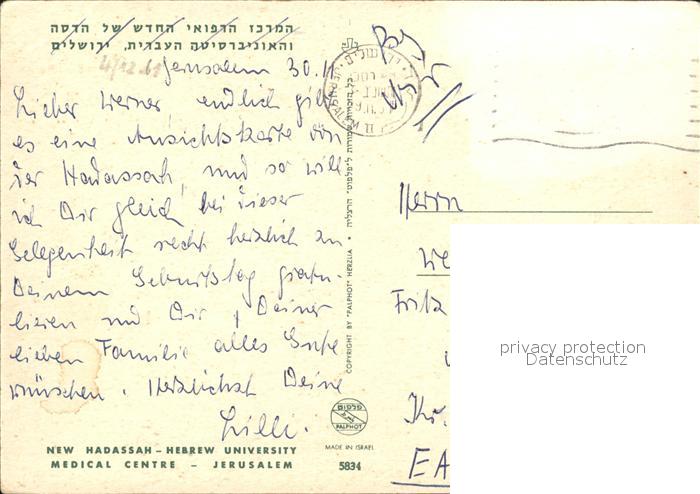 המרכז הרפואי החדש של הדסה
והאוניברסיטה העברית, ירושלים
4/12.61
Jerusalem 30.11
Lieber Werner endlich gibt
es eine Ansichtskarte von
der Hadassah, und so will
ich Dir gleich bei dieser
Gelegenheit recht herzlich zu
Deinem Geburtstag gratu-
lieren und Dir & Deiner
lieben Familie alles Gute
wünschen. Herzlichst Deine
Lilli.
NEW HADASSAH – HEBREW UNIVERSITY
MEDICAL CENTRE – JERUSALEM
COPYRIGHT BY "PALPHOT" HERZLIA • כל הזכויות שמורות ל"פלפוט" הרצליה
פלפוט
PALPHOT
MADE IN ISRAEL
5834
Herrn
We
Fritz
Kr.
EA
privacy protection
Datenschutz